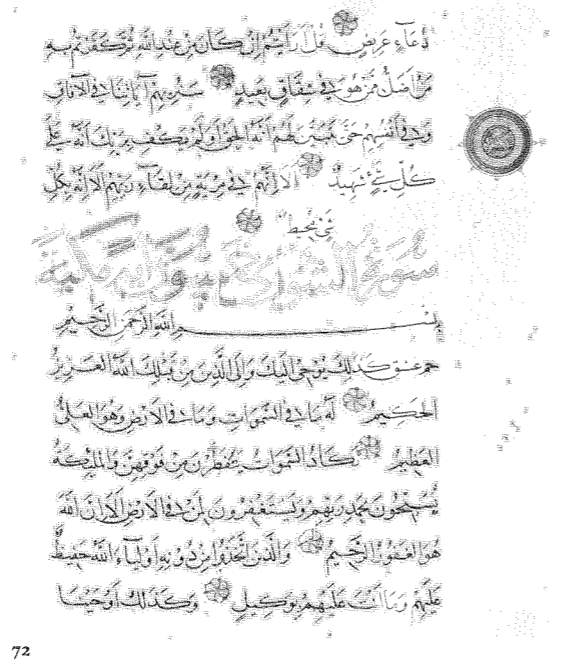 دُعَاءٍ عَرِيضٍ قُلْ أَرَأَيْتُمْ إِن كَانَ مِنْ عِندِ اللَّهِ ثُمَّ كَفَرْتُم بِهِ
مَنْ أَضَلُّ مِمَّنْ هُوَ فِي شِقَاقٍ بَعِيدٍ سَنُرِيهِمْ آيَاتِنَا فِي الْآفَاقِ
وَفِي أَنفُسِهِمْ حَتَّى يَتَبَيَّنَ لَهُمْ أَنَّهُ الْحَقُّ أَوَلَمْ يَكْفِ بِرَبِّكَ أَنَّهُ عَلَى
كُلِّ شَيْءٍ شَهِيدٌ أَلَا إِنَّهُمْ فِي مِرْيَةٍ مِن لِّقَاءِ رَبِّهِمْ أَلَا إِنَّهُ بِكُلِّ
شَيْءٍ مُّحِيطٌ
سُورَةُ الشُّورَى آيَة مَكِّيَّة
بِسْمِ اللَّهِ الرَّحْمَنِ الرَّحِيمِ
حم عسق كَذَلِكَ يُوحِي إِلَيْكَ وَإِلَى الَّذِينَ مِن قَبْلِكَ اللَّهُ الْعَزِيزُ
الْحَكِيمُ لَهُ مَا فِي السَّمَوَاتِ وَمَا فِي الْأَرْضِ وَهُوَ الْعَلِيُّ
الْعَظِيمُ تَكَادُ السَّمَوَاتُ يَتَفَطَّرْنَ مِن فَوْقِهِنَّ وَالْمَلَئِكَةُ
يُسَبِّحُونَ بِحَمْدِ رَبِّهِمْ وَيَسْتَغْفِرُونَ لِمَن فِي الْأَرْضِ أَلَا إِنَّ اللَّهَ
هُوَ الْغَفُورُ الرَّحِيمُ وَالَّذِينَ اتَّخَذُوا مِن دُونِهِ أَوْلِيَاءَ اللَّهُ حَفِيظٌ
عَلَيْهِمْ وَمَا أَنتَ عَلَيْهِم بِوَكِيلٍ وَكَذَلِكَ أَوْحَيْنَا
72